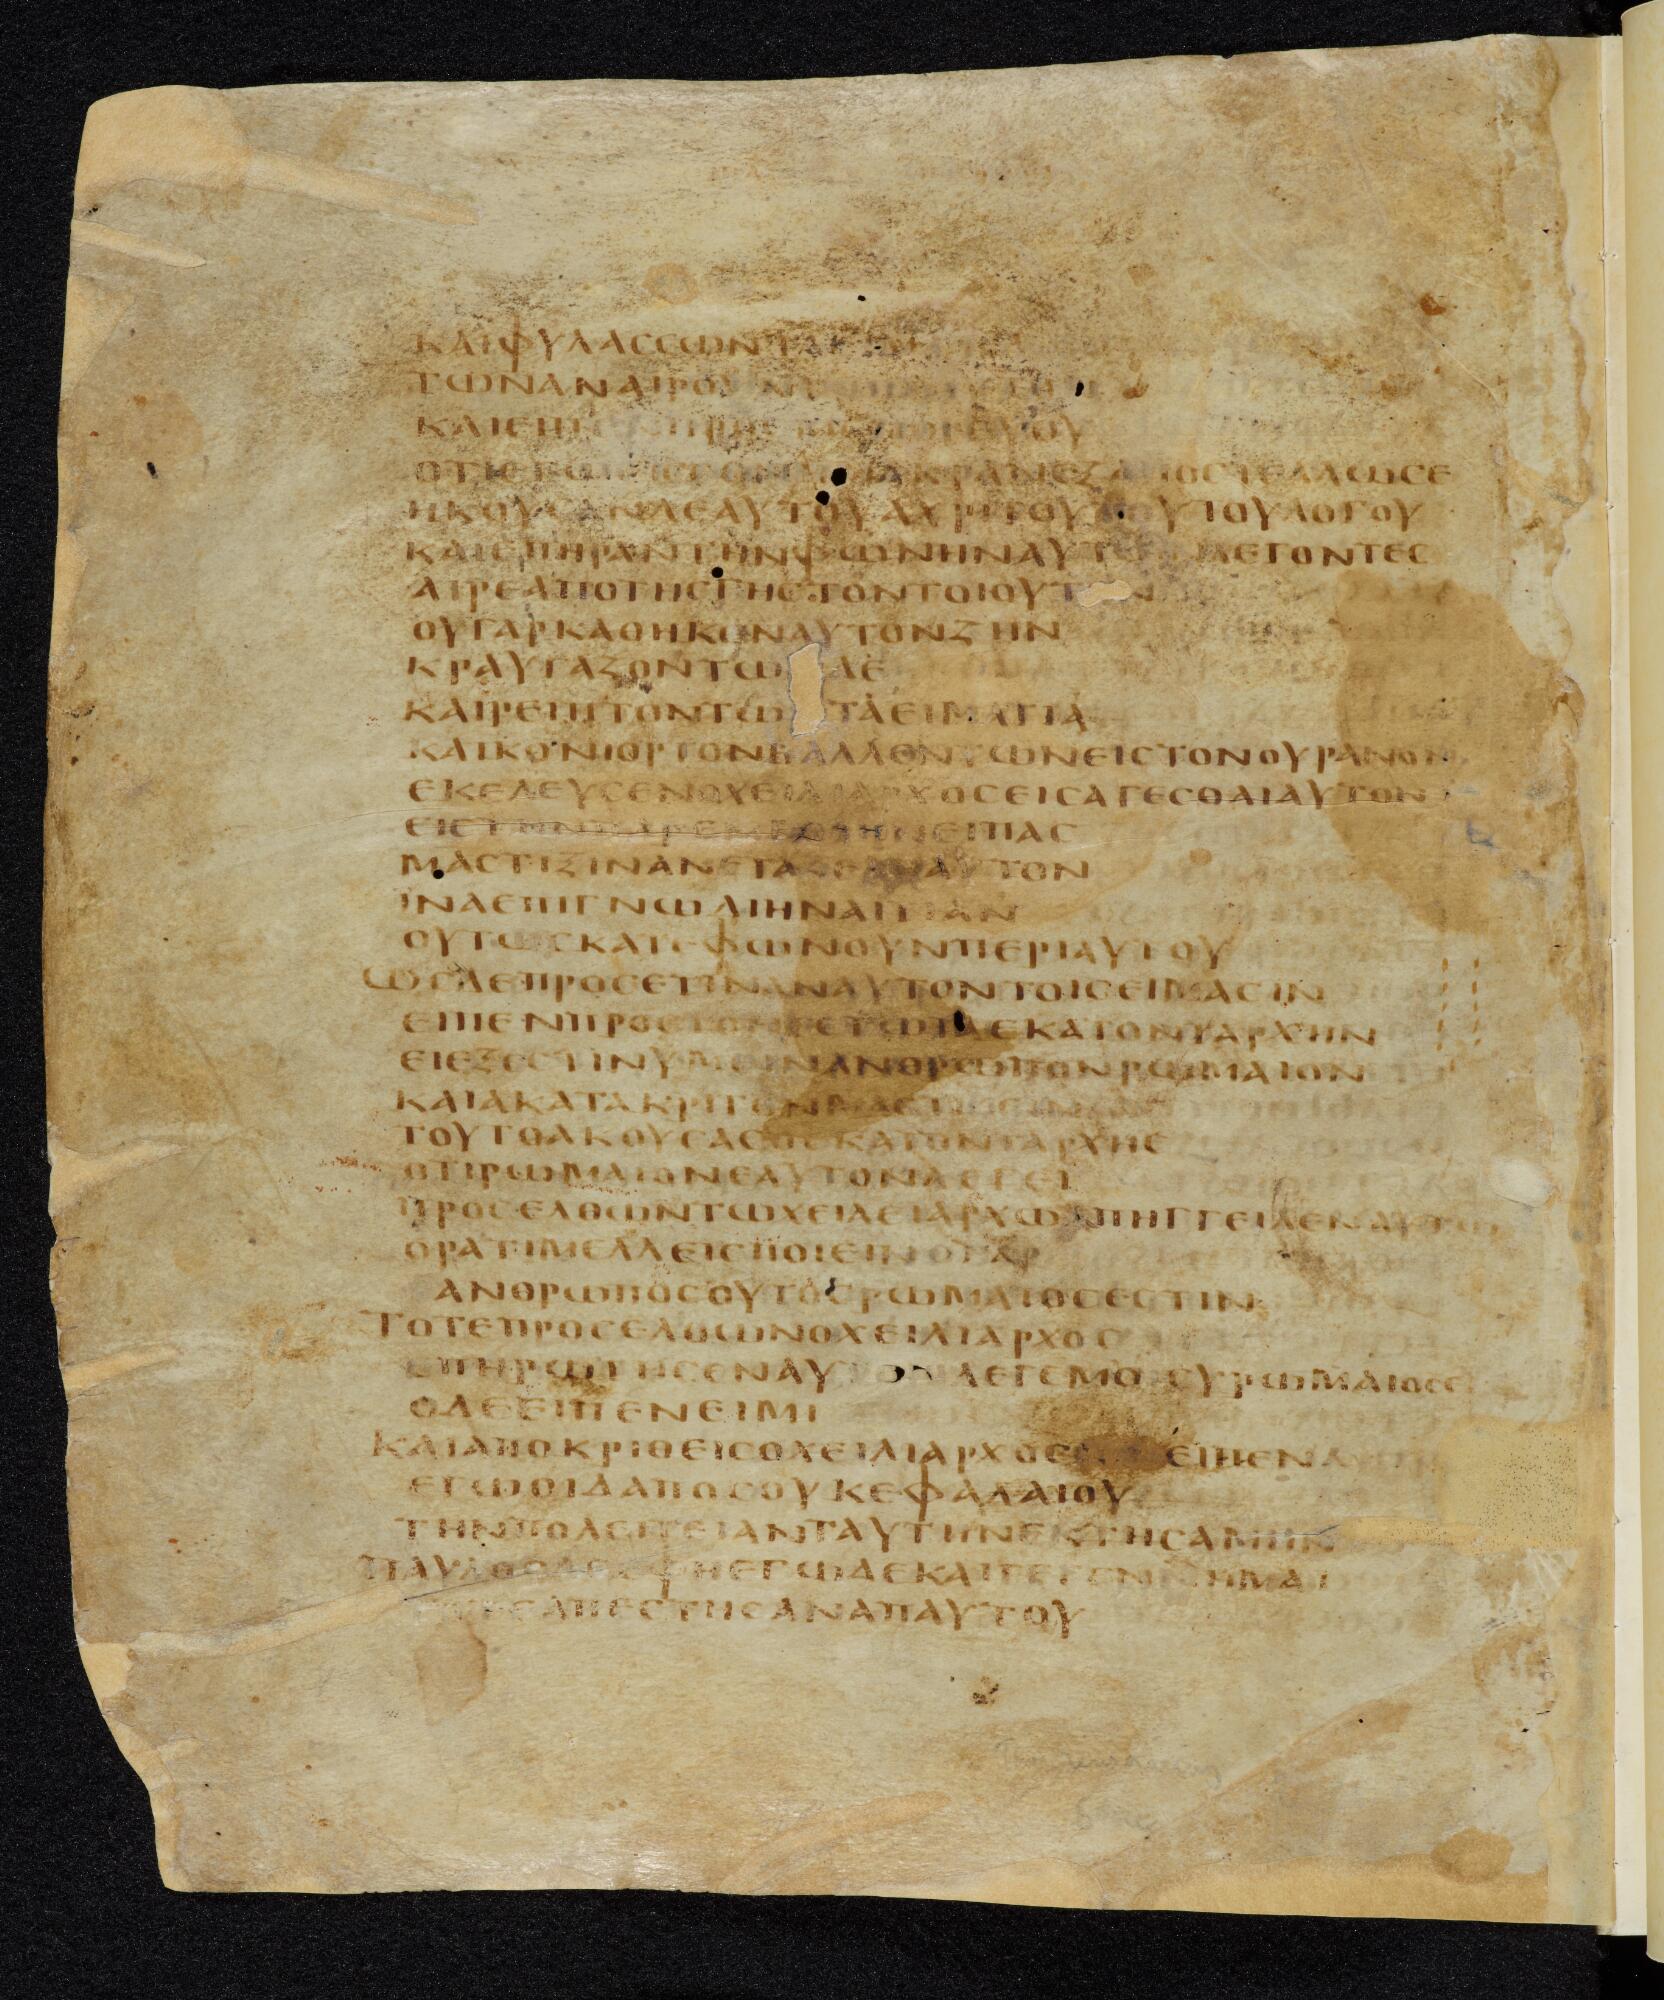 ΚΑΙΦΥΛΑССΩΝΤΑ
ΤΩΝΑΝΑΙΡΟΥΝΤΩΝ
ΚΑΙΕΙΠΕΝΠΡΟС
ΟΤΙΕΓΩ ΜΑΚΡΑΝΕΞΑΠΟСΤΕΛΛΩСΕ
ΗΚΟΥСΑΝΔΕΑΥΤΟΥΑΧΡΙΤΟΥΤΟΥΤΟΥΛΟΓΟΥ
ΚΑΙΕΠΗΡΑΝΤΗΝΦΩΝΗΝΑΥΤΩΝΛΕΓΟΝΤΕС
ΑΙΡΕΑΠΟΤΗСΓΗСΤΟΝΤΟΙΟΥΤΟΝ
ΟΥΓΑΡΚΑΘΗΚΟΝΑΥΤΟΝΖΗΝ
ΚΡΑΥΓΑΖΟΝΤΩ ΔΕ
ΚΑΙΡΕΙΠΤΟΝΤΩ ΤΑΕΙΜΑΤΙΑ
ΚΑΙΚΟΝΙΟΡΤΟΝΒΑΛΛΟΝΤΩΝΕΙСΤΟΝΟΥΡΑΝΟΝ
ΕΚΕΛΕΥСΕΝΟΧΕΙΛΙΑΡΧΟСΕΙСΑΓΕСΘΑΙΑΥΤΟΝ
ΕΙСΤΗΝΠΑΡΕΜΒΟΛΗΝΕΙΠΑС
ΜΑСΤΙΞΙΝΑΝΕΤΑΖΕΙΝΑΥΤΟΝ
ΙΝΑΕΠΙΓΝΩΔΙΗΝΑΙΤΙΑΝ
ΟΥΤΩСΚΑΤΕΦΩΝΟΥΝΠΕΡΙΑΥΤΟΥ
ΩСΔΕΠΡΟСΕΤΙΝΑΝΑΥΤΟΝΤΟΙСΕΙΜΑСΙΝ
ΕΙΠΕΝΠΡΟСΤΟΝ ΕСΤΩΤΑΕΚΑΤΟΝΤΑΡΧΗΝ
ΕΙΕΞΕСΤΙΝΥΜΕΙΝΑΝΘΡΩΠΟΝΡΩΜΑΙΟΝ
ΚΑΙΑΚΑΤΑΚΡΙΤΟΝΜΑСΤΙΖΕΙΝ
ΤΟΥΤΟΑΚΟΥСΑСΟΕΚΑΤΟΝΤΑΡΧΗС
ΟΤΙΡΩΜΑΙΟΝΕΑΥΤΟΝΛΕΓΕΙ
ΠΡΟСΕΛΘΩΝΤΩΧΕΙΛΕΙΑΡΧΩΑΠΗΓΓΕΙΛΕΝΑΥΤΩ
ΟΡΑΤΙΜΕΛΛΕΙСΠΟΙΕΙΝΟΓΑΡ
ΑΝΘΡΩΠΟСΟΥΤΟСΡΩΜΑΙΟСΕСΤΙΝ
ΤΟΤΕΠΡΟСΕΛΘΩΝΟΧΕΙΛΙΑΡΧΟС
ΕΠΗΡΩΤΗСΕΝΑΥΤΟΝ ΛΕΓΕΜΟΙСΥΡΩΜΑΙΟСΕ
ΟΔΕΕΙΠΕΝΕΙΜΙ
ΚΑΙΑΠΟΚΡΙΘΕΙСΟΧΕΙΛΙΑΡΧΟС ΕΙΠΕΝΑΥΤΩ
ΕΓΩΟΙΔΑΠΟСΟΥΚΕΦΑΛΑΙΟΥ
ΤΗΝΠΟΛΕΙΤΕΙΑΝΤΑΥΤΗΝΕΚΤΗСΑΜΗΝ
ΠΑΥΛΟСΔΕΕΦΗΕΓΩΔΕΚΑΙΓΕΓΕΝΝΗΜΑΙ
ΑΠΕСΤΗСΑΝΑΠΑΥΤΟΥ